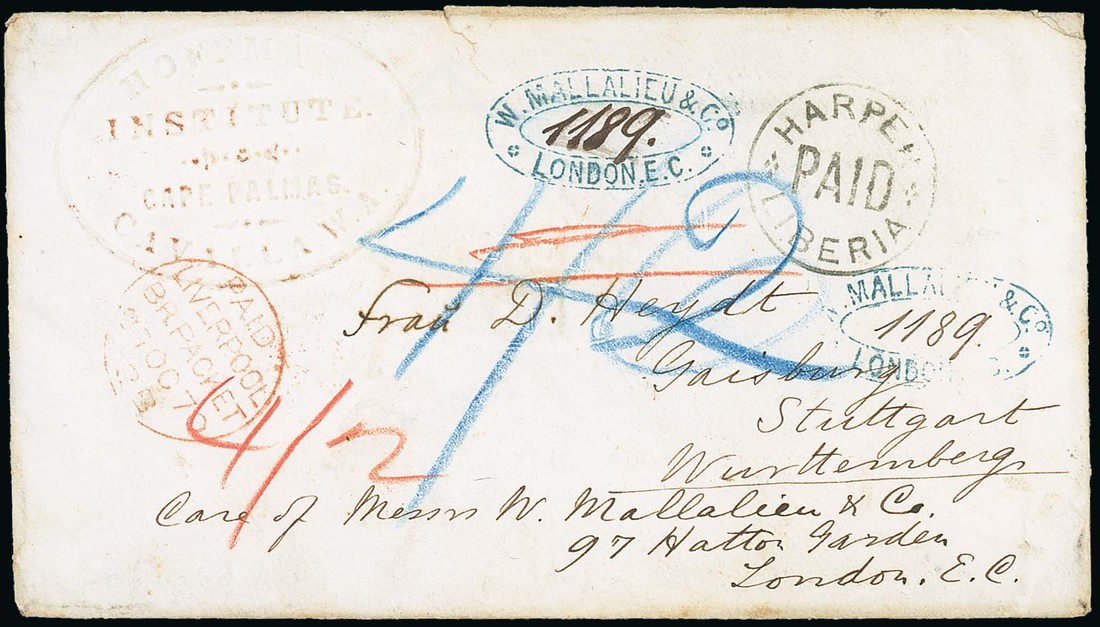 HOFFMAN
INSTITUTE.
CAPE PALMAS.
CAVALLA, W.A.
W. MALLALIEU & Co
1189.
LONDON, E.C.
HARPER
PAID
LIBERIA
4/2
PAID
LIVERPOOL
BR. PACKET
OC 70
4/2
MALLALIEU & Co
1189.
LONDON
Frau D. Heydt
Gaisburg
Stuttgart
Wurttemberg
Care of Messrs W. Mallalieu & Co.
97 Hatton Garden
London, E.C.